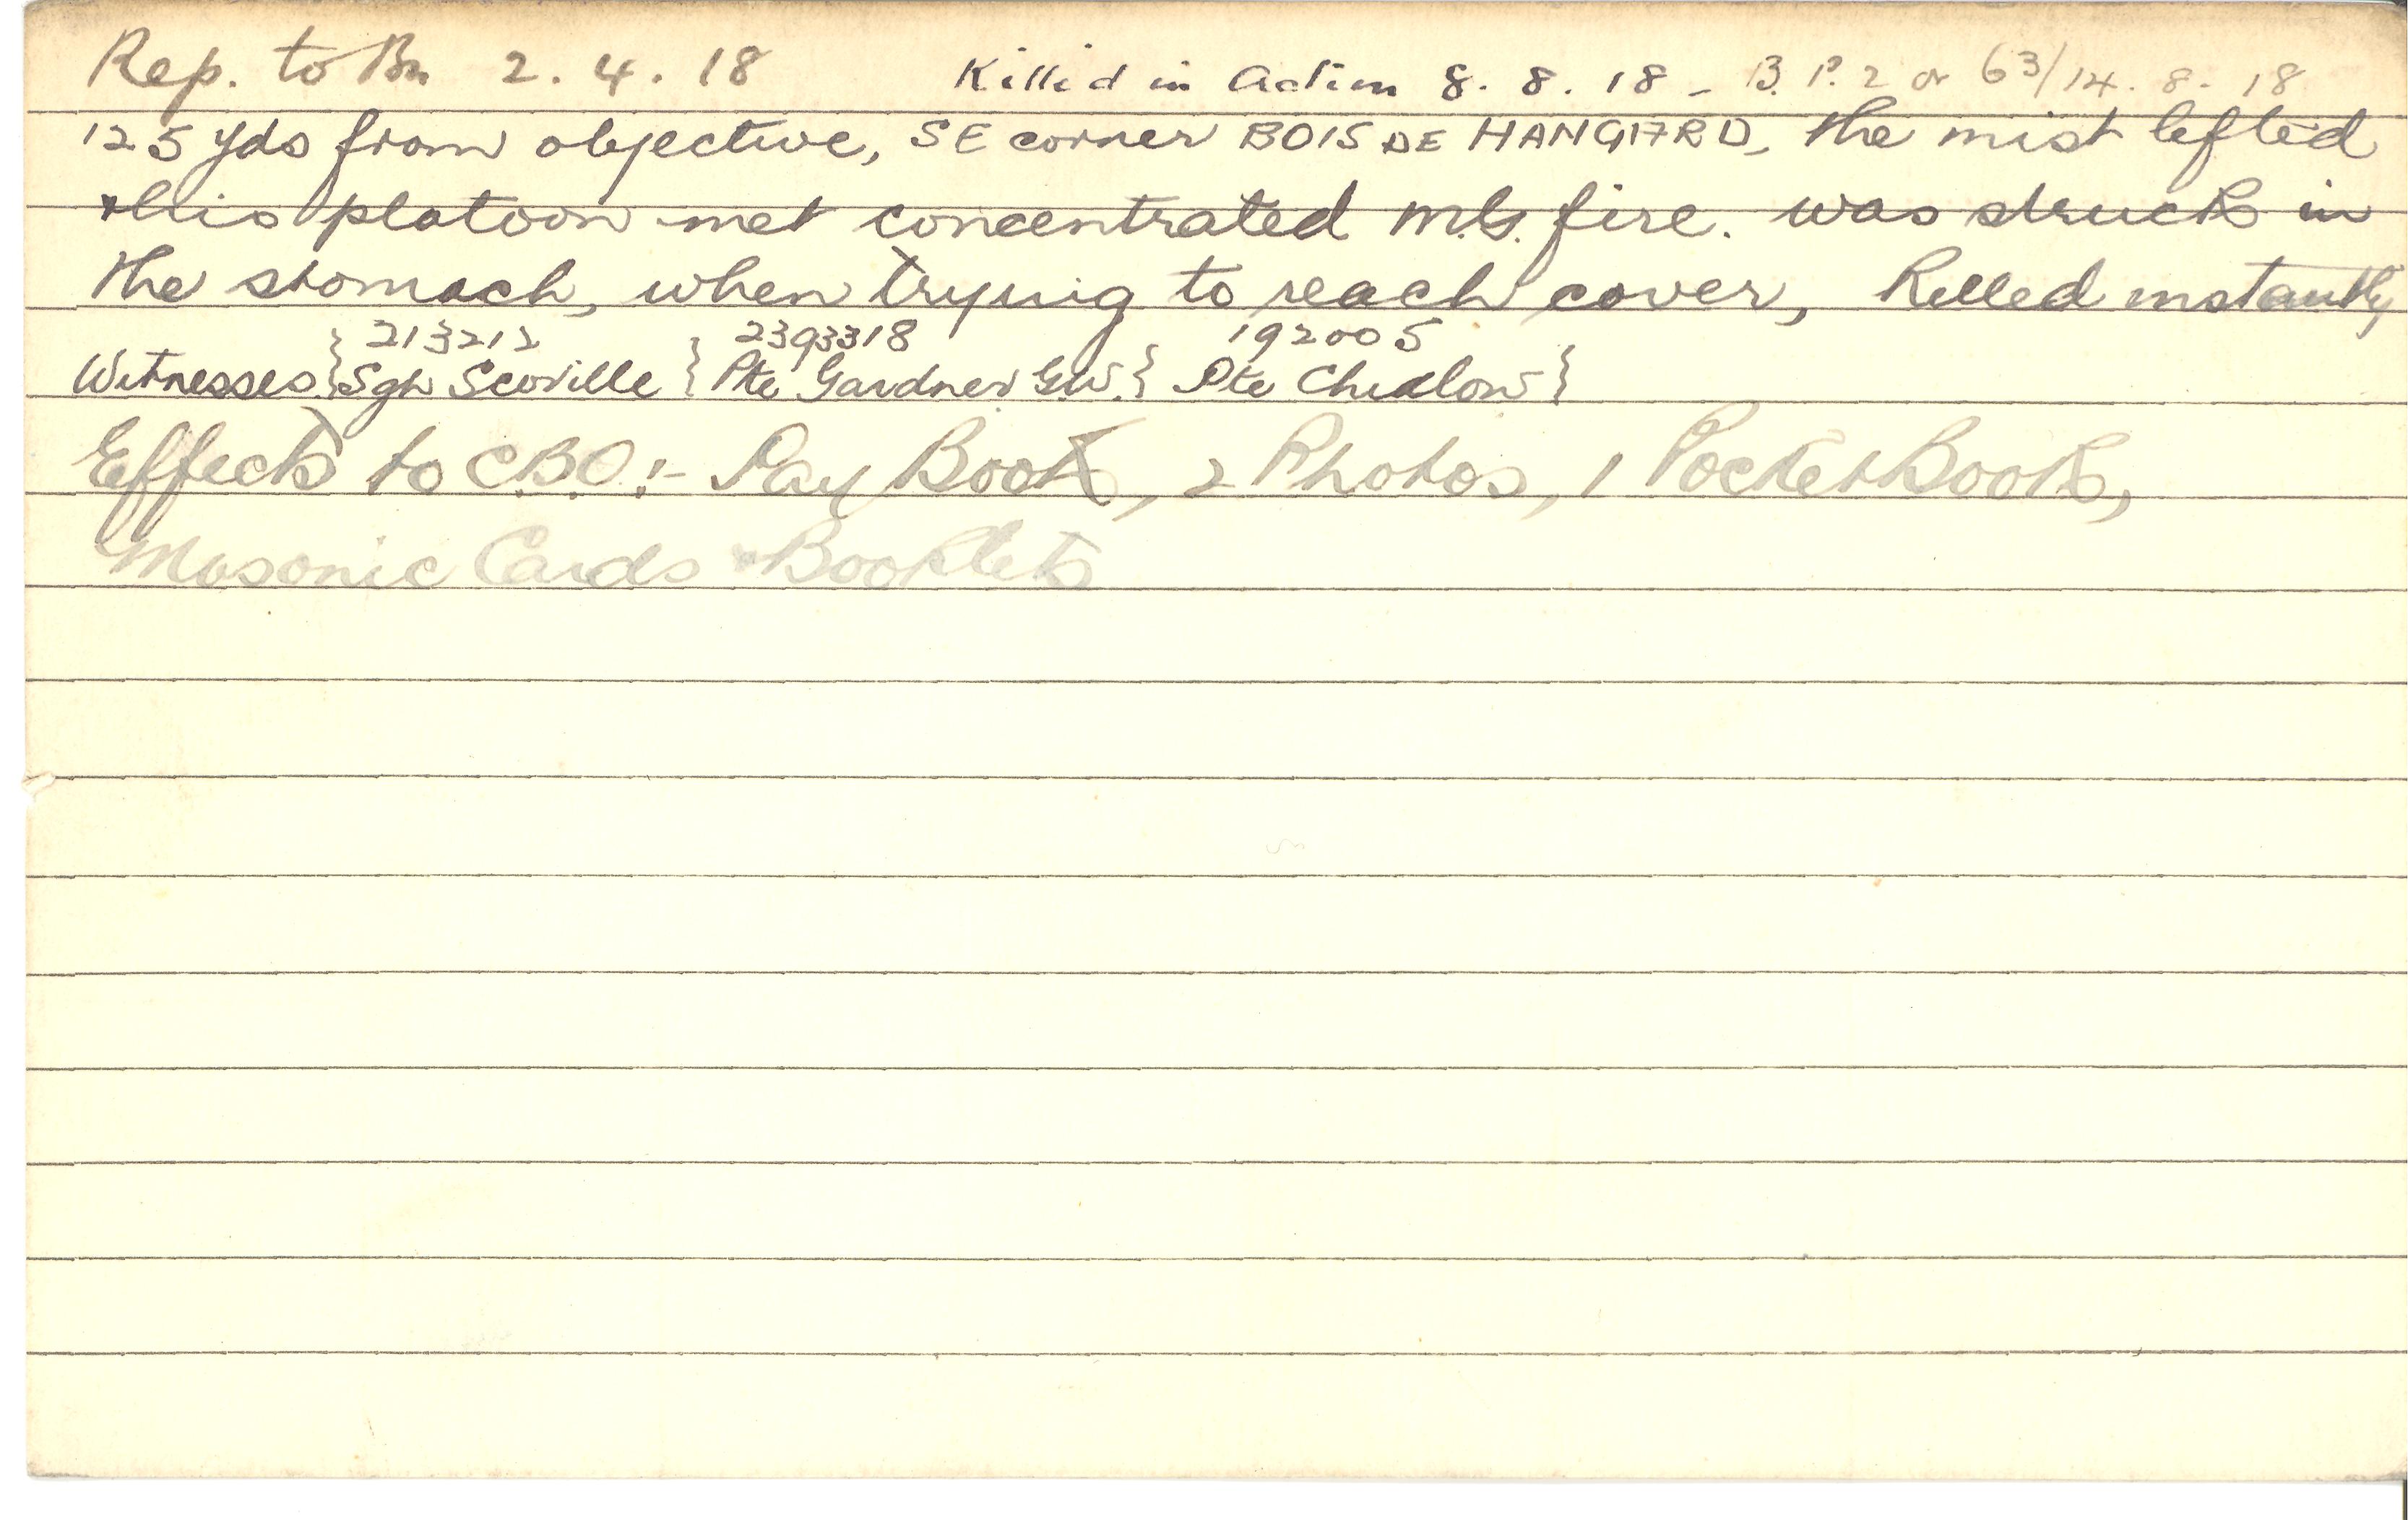 Rep. to Bn 2. 4. 18 Killed in Action 8. 8. 18 - B. P. 2 or 63/14. 8. 18
125 yds from objective, SE corner BOIS DE HANGARD, the mist lifted
& his platoon met concentrated M.G. fire. was struck in
the stomach, when trying to reach cover, killed instantly
213212 2393318 192005
Witnesses } Sgt Scoville } Pte Gardner G.W. } Pte Chidlow }
Effects to C.B.O:- Pay Book, 2 Photos, 1 Pocket Book,
Masonic Cards & Booklets